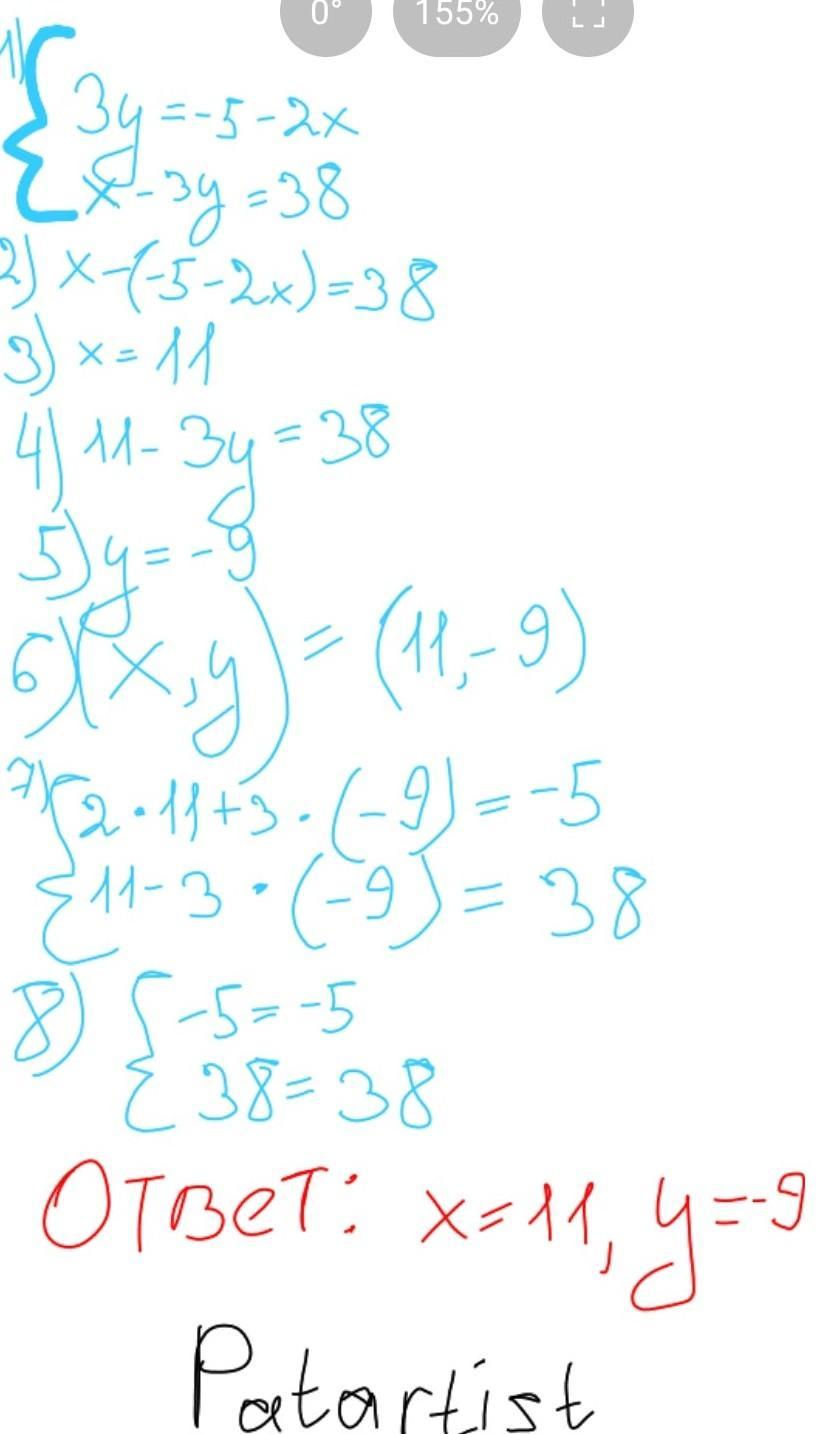 0° 155%
1) { 3y = -5 - 2x
x - 3y = 38
2) x - (-5 - 2x) = 38
3) x = 11
4) 11 - 3y = 38
5) y = -9
6) (x, y) = (11, -9)
7) { 2 · 11 + 3 · (-9) = -5
11 - 3 · (-9) = 38
8) { -5 = -5
38 = 38
Ответ: x = 11, y = -9
Patartist